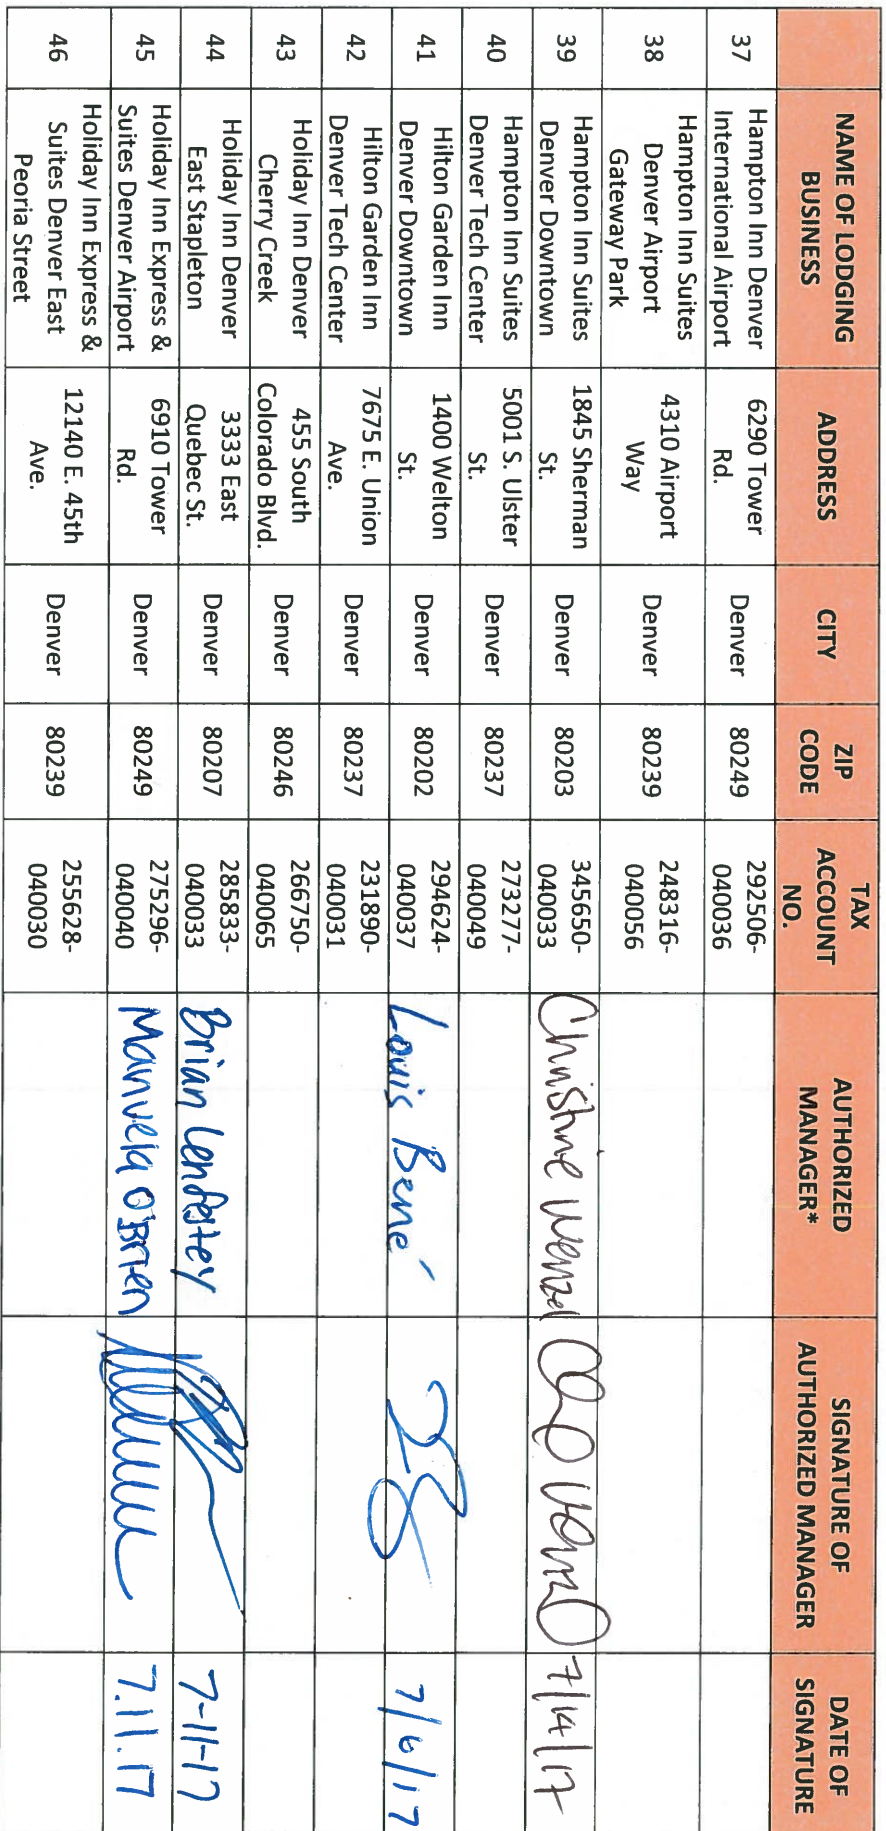 NAME OF LODGING BUSINESS ADDRESS CITY ZIP CODE TAX ACCOUNT NO. AUTHORIZED MANAGER* SIGNATURE OF AUTHORIZED MANAGER DATE OF SIGNATURE
37 Hampton Inn Denver International Airport 6290 Tower Rd. Denver 80249 292506-040036
38 Hampton Inn Suites Denver Airport Gateway Park 4310 Airport Way Denver 80239 248316-040056
39 Hampton Inn Suites Denver Downtown 1845 Sherman St. Denver 80203 345650-040033 Christine Wenzel 7/14/17
40 Hampton Inn Suites Denver Tech Center 5001 S. Ulster St. Denver 80237 273277-040049
41 Hilton Garden Inn Denver Downtown 1400 Welton St. Denver 80202 294624-040037 Louis Bené 7/6/17
42 Hilton Garden Inn Denver Tech Center 7675 E. Union Ave. Denver 80237 231890-040031
43 Holiday Inn Denver Cherry Creek 455 South Colorado Blvd. Denver 80246 266750-040065
44 Holiday Inn Denver East Stapleton 3333 East Quebec St. Denver 80207 285833-040033 Brian Lenfestey 7-11-17
45 Holiday Inn Express & Suites Denver Airport 6910 Tower Rd. Denver 80249 275296-040040 Manuela O'Brien 7.11.17
46 Holiday Inn Express & Suites Denver East Peoria Street 12140 E. 45th Ave. Denver 80239 255628-040030